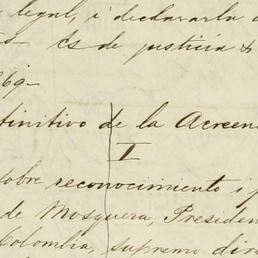 legal, i declararla
Es de justicia &
69—
finitivo de la Acreen
I
sobre reconocimiento i p
de Mosquera, Presiden
Colombia, supremo dire